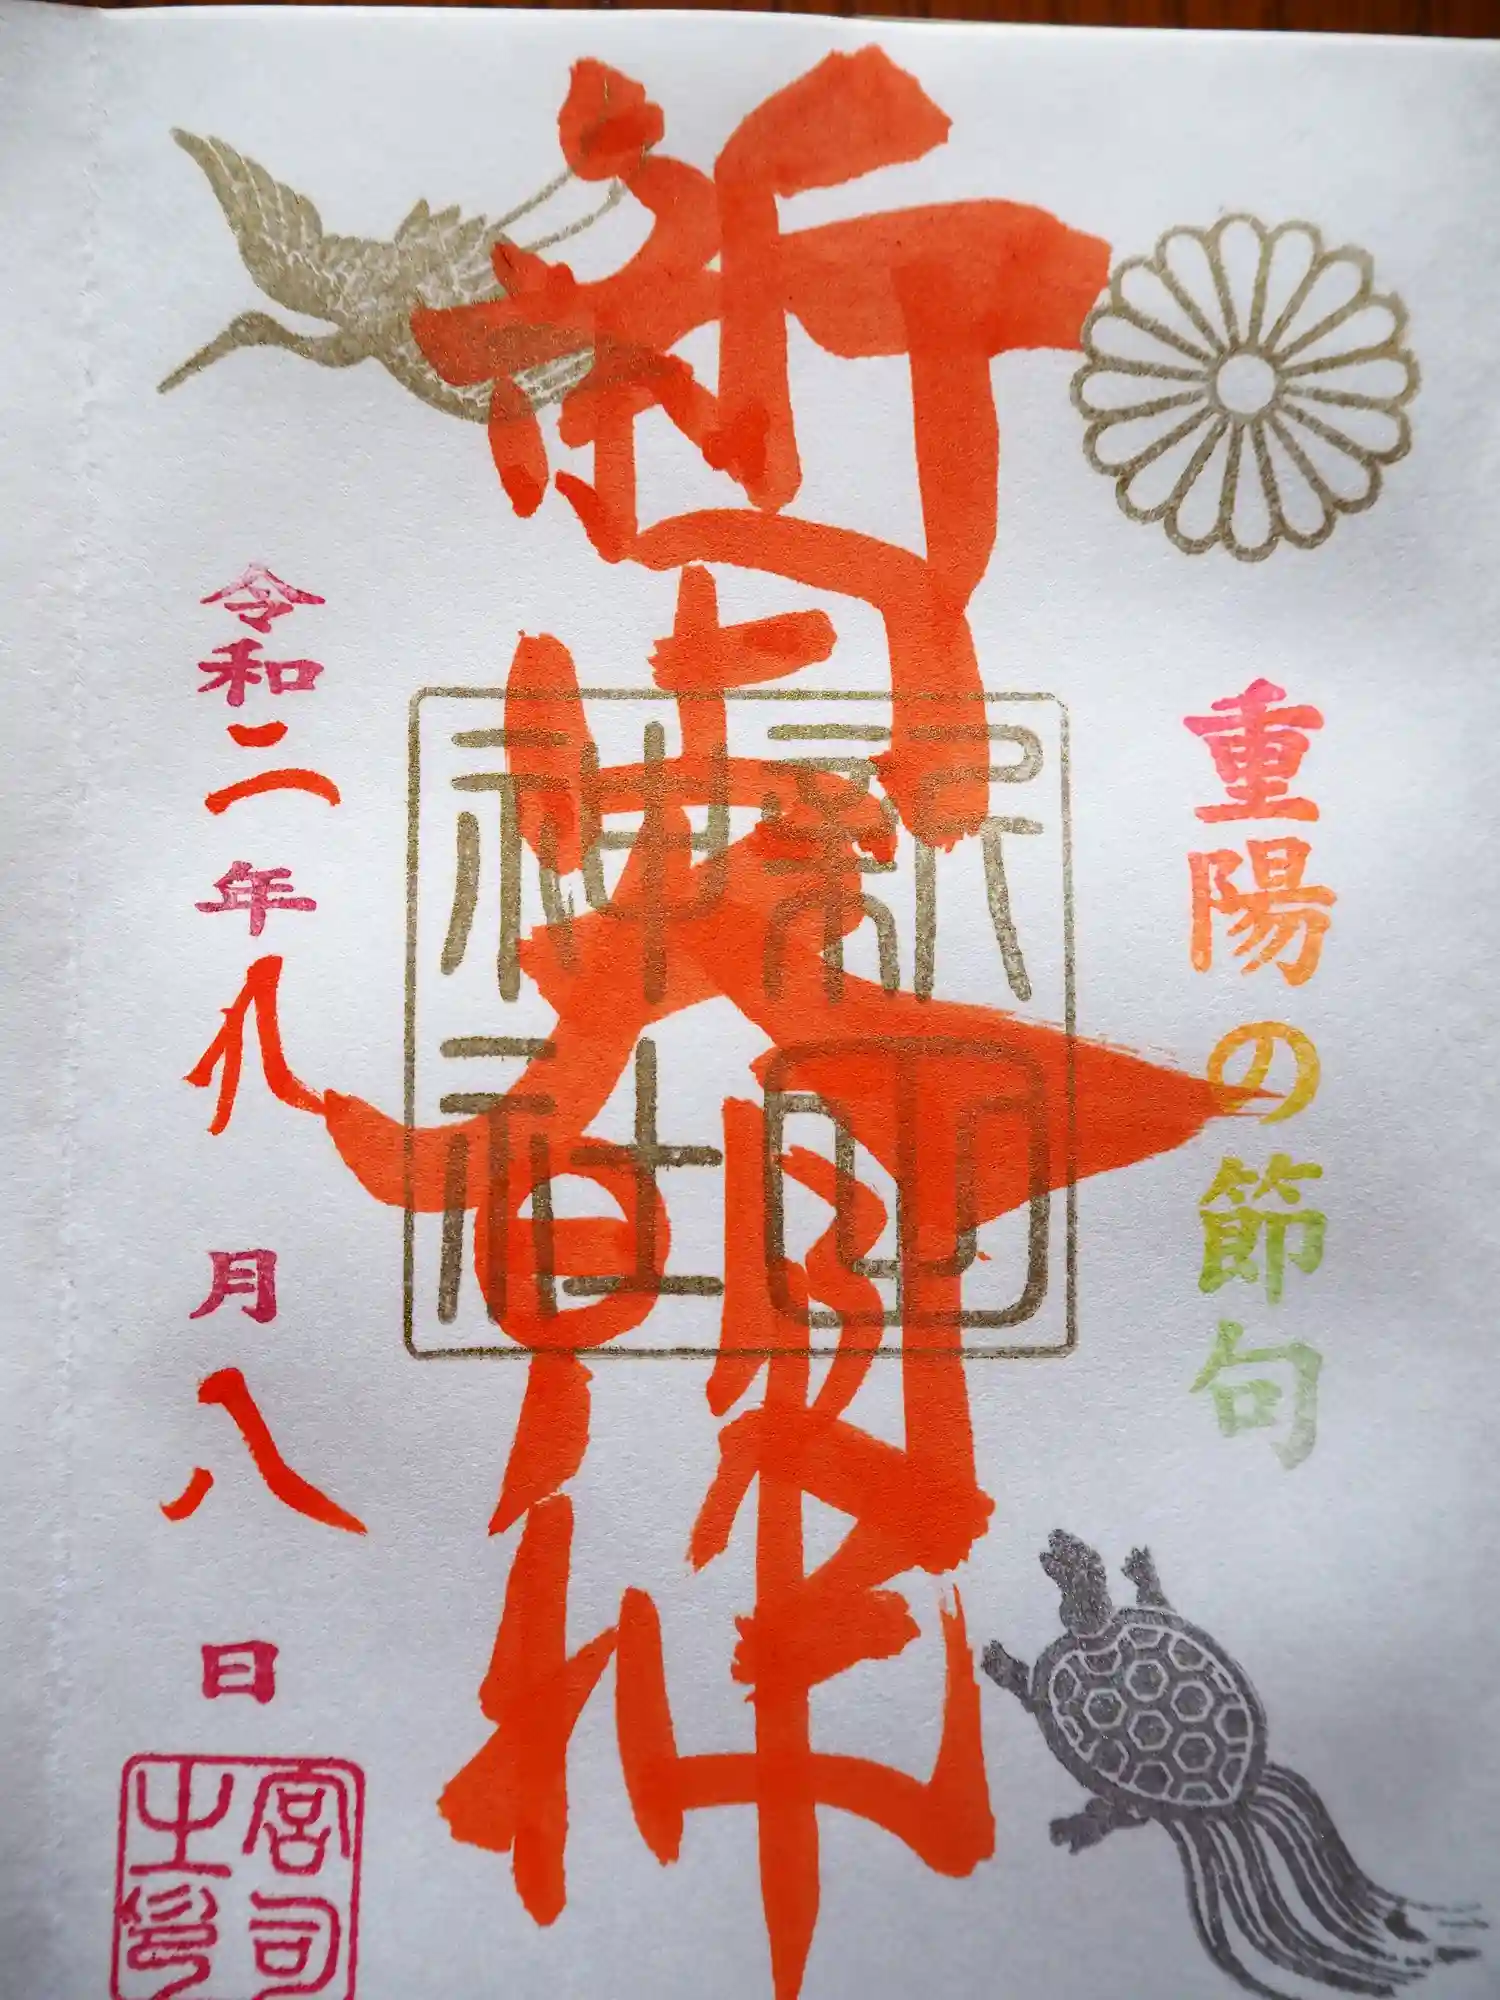 重陽の節句
新岡大明神
新岡
神社
令和二年九月八日
宮司
之印